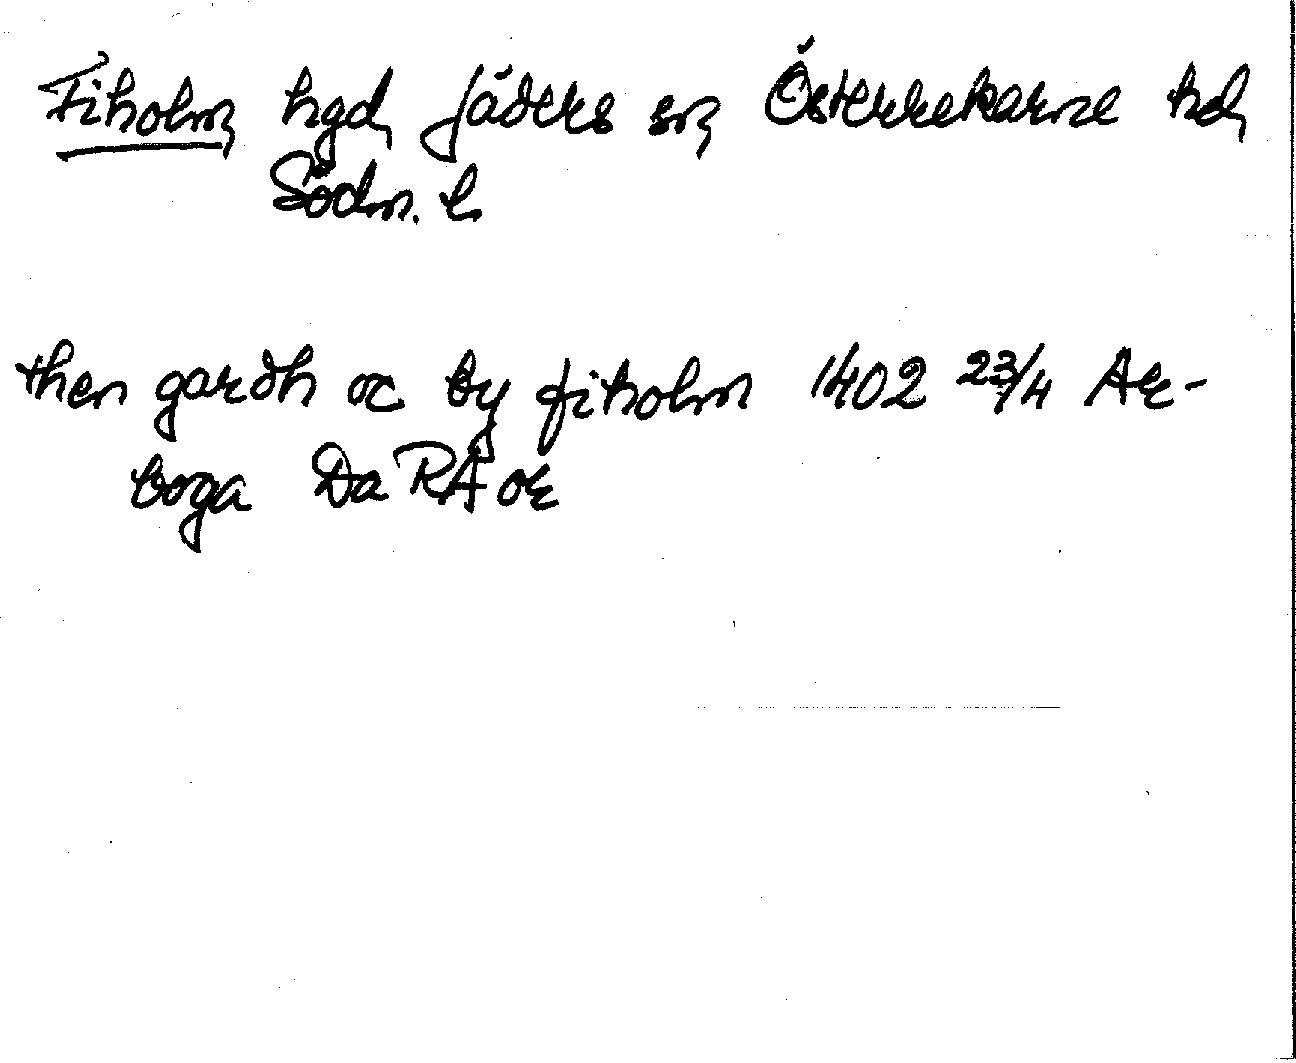 Fiholm, hgd, Jäders sn, Österrekarne hd,
Södm. l.
then gardh oc by fiholm 1402 23/4 Ar-
boga Da RA or